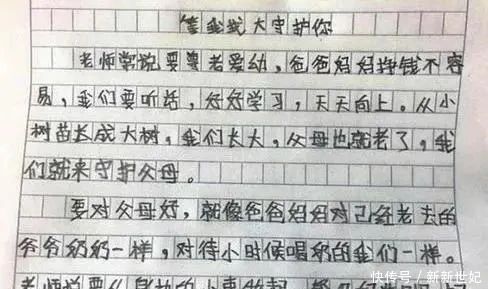 等我长大守护你
老师常说要尊老爱幼，爸爸妈妈挣钱不容
易，我们要听话，好好学习，天天向上。从小
树苗长成大树，我们长大，父母也就老了，我
们就来守护父母。
要对父母好，就像爸爸妈妈对已经老去的
爷爷奶奶一样，对待小时候唱奶的我们一样。
老师说要从身边的小事做起，
快传号 / 新新世妃